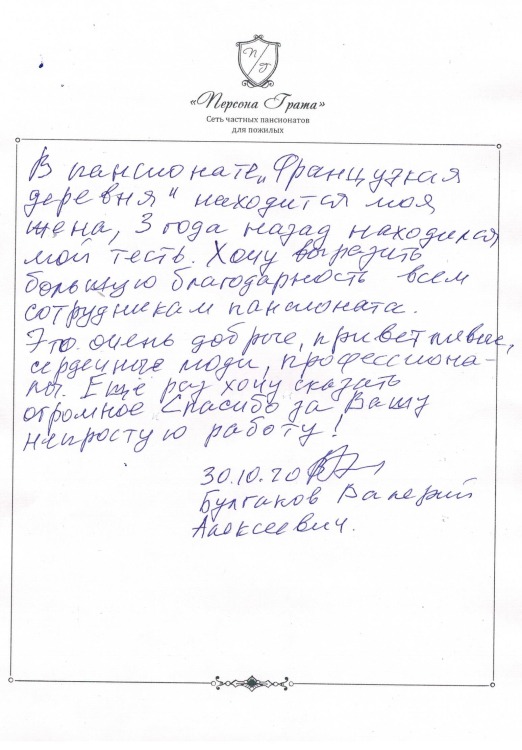 П/Г
«Персона Грата»
Сеть частных пансионатов
для пожилых
В пансионате „Французкая
деревня“ находится моя
жена, 3 года назад находился
мой тесть. Хочу выразить
большую благодарность всем
сотрудникам пансионата.
Это очень добрые, приветливые,
сердечные люди, профессиона-
лы. Ещё раз хочу сказать
огромное Спасибо за Вашу
непростую работу!
30.10.20
Булгаков Валерий
Алексеевич.